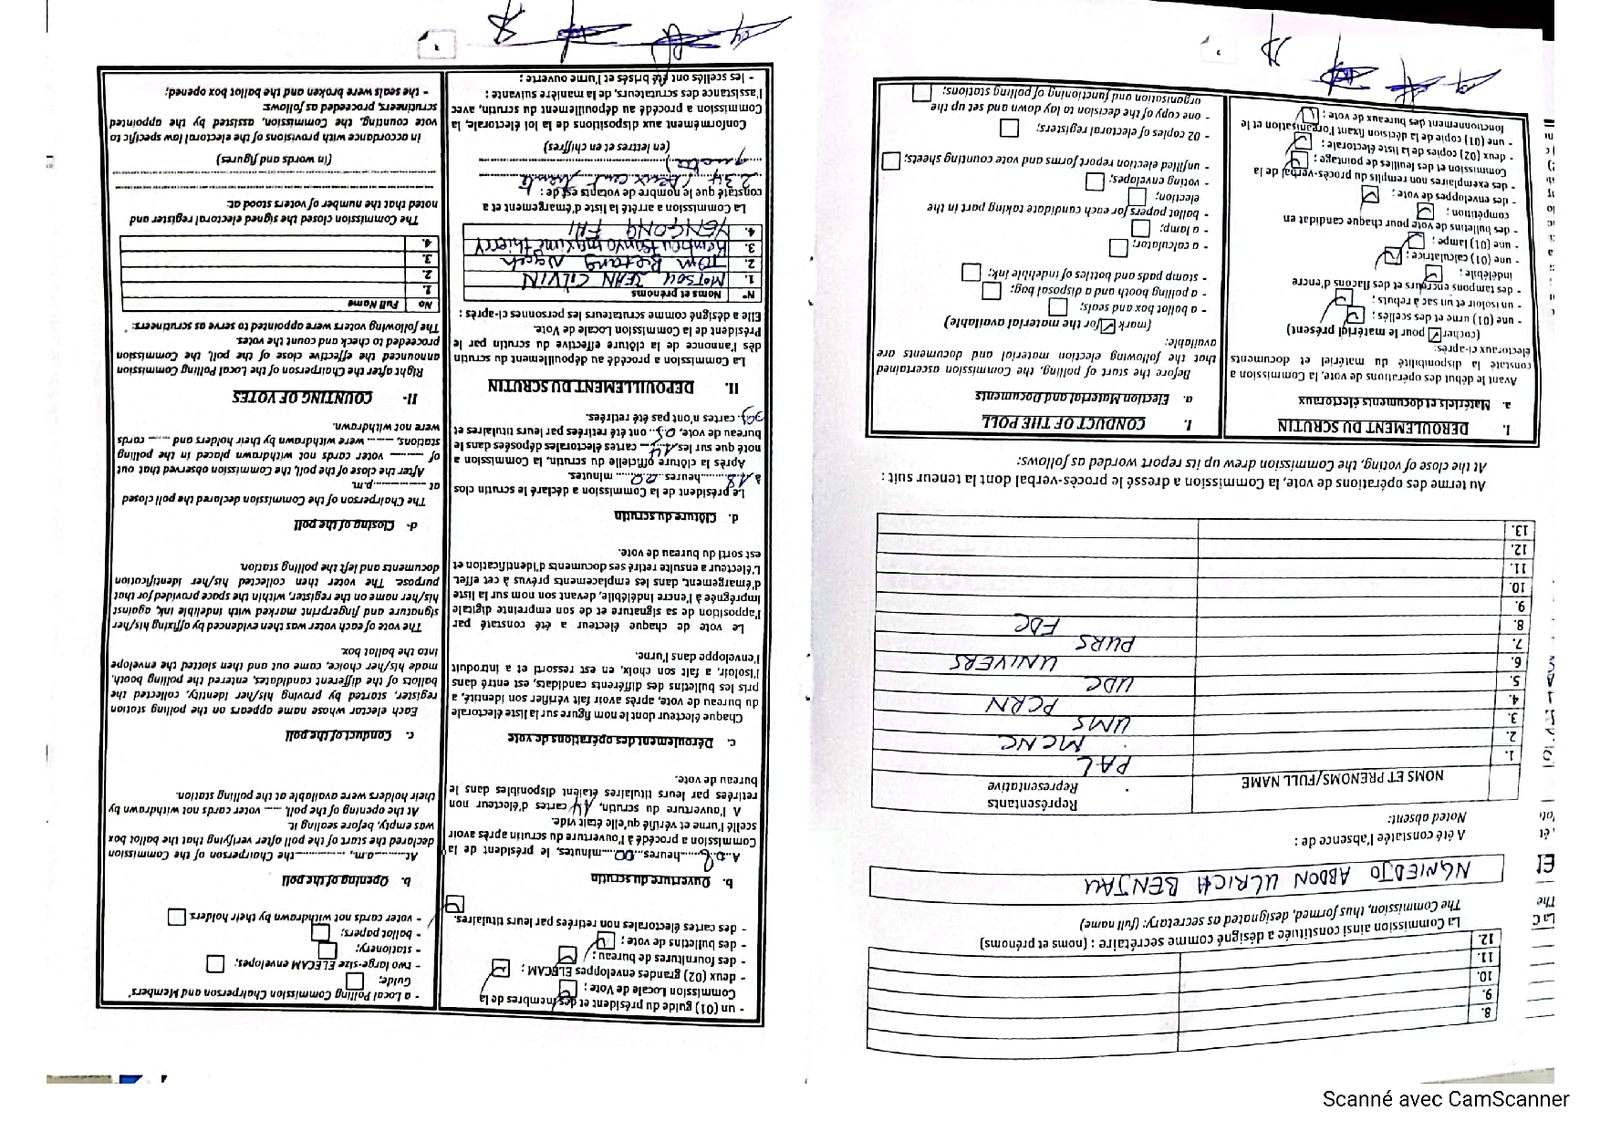 8.
9.
10.
11.
12.
La Commission ainsi constituée a désigné comme secrétaire : (noms et prénoms)
The Commission, thus formed, designated as secretary: (full name)
NGNIEDJO ABDON ULRICH BENJAU
A été constatée l'absence de :
Noted absent:
NOMS ET PRENOMS/FULL NAME
Représentants
Representative
1. PAL
2. MCNC
3. UMS
4. PCRN
5. UDC
6. UNIVERS
7. PURS
8. FDC
9.
10.
11.
12.
13.
Au terme des opérations de vote, la Commission a dressé le procès-verbal dont la teneur suit :
At the close of voting, the Commission drew up its report worded as follows:
I. DEROULEMENT DU SCRUTIN
a. Matériels et documents électoraux
Avant le début des opérations de vote, la Commission a
constaté la disponibilité du matériel et documents
électoraux ci-après:
(cocher pour le matériel présent)
- une (01) urne et des scellés ;
- un isoloir et un sac à rebuts ;
- des tampons encreurs et des flacons d'encre
indélébile ;
- une (01) calculatrice ;
- une (01) lampe ;
- des bulletins de vote pour chaque candidat en
compétition ;
- des enveloppes de vote ;
- des exemplaires non remplis du procès-verbal de la
Commission et des feuilles de pointage ;
- deux (02) copies de la liste électorale ;
- une (01) copie de la décision fixant l'organisation et le
fonctionnement des bureaux de vote ;
I. CONDUCT OF THE POLL
a. Election Material and Documents
Before the start of polling, the Commission ascertained
that the following election material and documents are
available:
(mark for the material available)
- a ballot box and seals;
- a polling booth and a disposal bag;
- stamp pads and bottles of indelible ink;
- a calculator;
- a lamp;
- ballot papers for each candidate taking part in the
election;
- voting envelopes;
- unfilled election report forms and vote counting sheets;
- 02 copies of electoral registers;
- one copy of the decision to lay down and set up the
organisation and functioning of polling stations;
- un (01) guide du président et des membres de la
Commission Locale de Vote ;
- deux (02) grandes enveloppes ELECAM ;
- des fournitures de bureau ;
- des bulletins de vote ;
- des cartes électorales non retirées par leurs titulaires.
b. Ouverture du scrutin
A..08..heures..00..minutes, le président de la
Commission a procédé à l'ouverture du scrutin après avoir
scellé l'urne et vérifié qu'elle était vide.
A l'ouverture du scrutin, 14 cartes d'électeur non
retirées par leurs titulaires étaient disponibles dans le
bureau de vote.
c. Déroulement des opérations de vote
Chaque électeur dont le nom figure sur la liste électorale
du bureau de vote, après avoir fait vérifier son identité, a
pris les bulletins des différents candidats, est entré dans
l'isoloir, a fait son choix, en est ressorti et a introduit
l'enveloppe dans l'urne.
Le vote de chaque électeur a été constaté par
l'apposition de sa signature et de son empreinte digitale
imprégnée à l'encre indélébile, devant son nom sur la liste
d'émargement, dans les emplacements prévus à cet effet.
L'électeur a ensuite retiré ses documents d'identification et
est sorti du bureau de vote.
d. Clôture du scrutin
Le président de la Commission a déclaré le scrutin clos
à 18 heures 00 minutes.
Après la clôture officielle du scrutin, la Commission a
noté que sur les 14 cartes électorales déposées dans le
bureau de vote, 05 ont été retirées par leurs titulaires et
09 cartes n'ont pas été retirées.
II. DEPOUILLEMENT DU SCRUTIN
La Commission a procédé au dépouillement du scrutin
dès l'annonce de la clôture effective du scrutin par le
Président de la Commission Locale de Vote.
Elle a désigné comme scrutateurs les personnes ci-après :
N° Noms et prénoms
1. MOTSOU JEAN CILVIN
2. TOM
3. maxime thierry
4. YENGONG
La Commission a arrêté la liste d'émargement et a
constaté que le nombre de votants est de :
234 (deux cent trente
quatre)
(en lettres et en chiffres)
Conformément aux dispositions de la loi électorale, la
Commission a procédé au dépouillement du scrutin, avec
l'assistance des scrutateurs, de la manière suivante :
- les scellés ont été brisés et l'urne ouverte ;
- a Local Polling Commission Chairperson and Members'
Guide;
- two large-size ELECAM envelopes;
- stationery;
- ballot papers;
- voter cards not withdrawn by their holders
b. Opening of the poll
At..........a.m, ..........the Chairperson of the Commission
declared the start of the poll after verifying that the ballot box
was empty, before sealing it.
At the opening of the poll, ..... voter cards not withdrawn by
their holders were available at the polling station.
c. Conduct of the poll
Each elector whose name appears on the polling station
register, started by proving his/her identity, collected the
ballots of the different candidates, entered the polling booth,
made his/her choice, came out and then slotted the envelope
into the ballot box.
The vote of each voter was then evidenced by affixing his/her
signature and fingerprint marked with indelible ink, against
his/her name on the register, within the space provided for that
purpose. The voter then collected his/her identification
documents and left the polling station.
d- Closing of the poll
The Chairperson of the Commission declared the poll closed
at ...............p.m.
After the close of the poll, the Commission observed that out
of ------- voter cards not withdrawn placed in the polling
stations, ------ were withdrawn by their holders and ----- cards
were not withdrawn.
II- COUNTING OF VOTES
Right after the Chairperson of the Local Polling Commission
announced the effective close of the poll, the Commission
proceeded to check and count the votes.
The following voters were appointed to serve as scrutineers:
No Full Name
1.
2.
3.
4.
The Commission closed the signed electoral register and
noted that the number of voters stood at:
(in words and figures)
In accordance with provisions of the electoral law specific to
vote counting, the Commission, assisted by the appointed
scrutineers, proceeded as follows:
- the seals were broken and the ballot box opened;
Scanné avec CamScanner